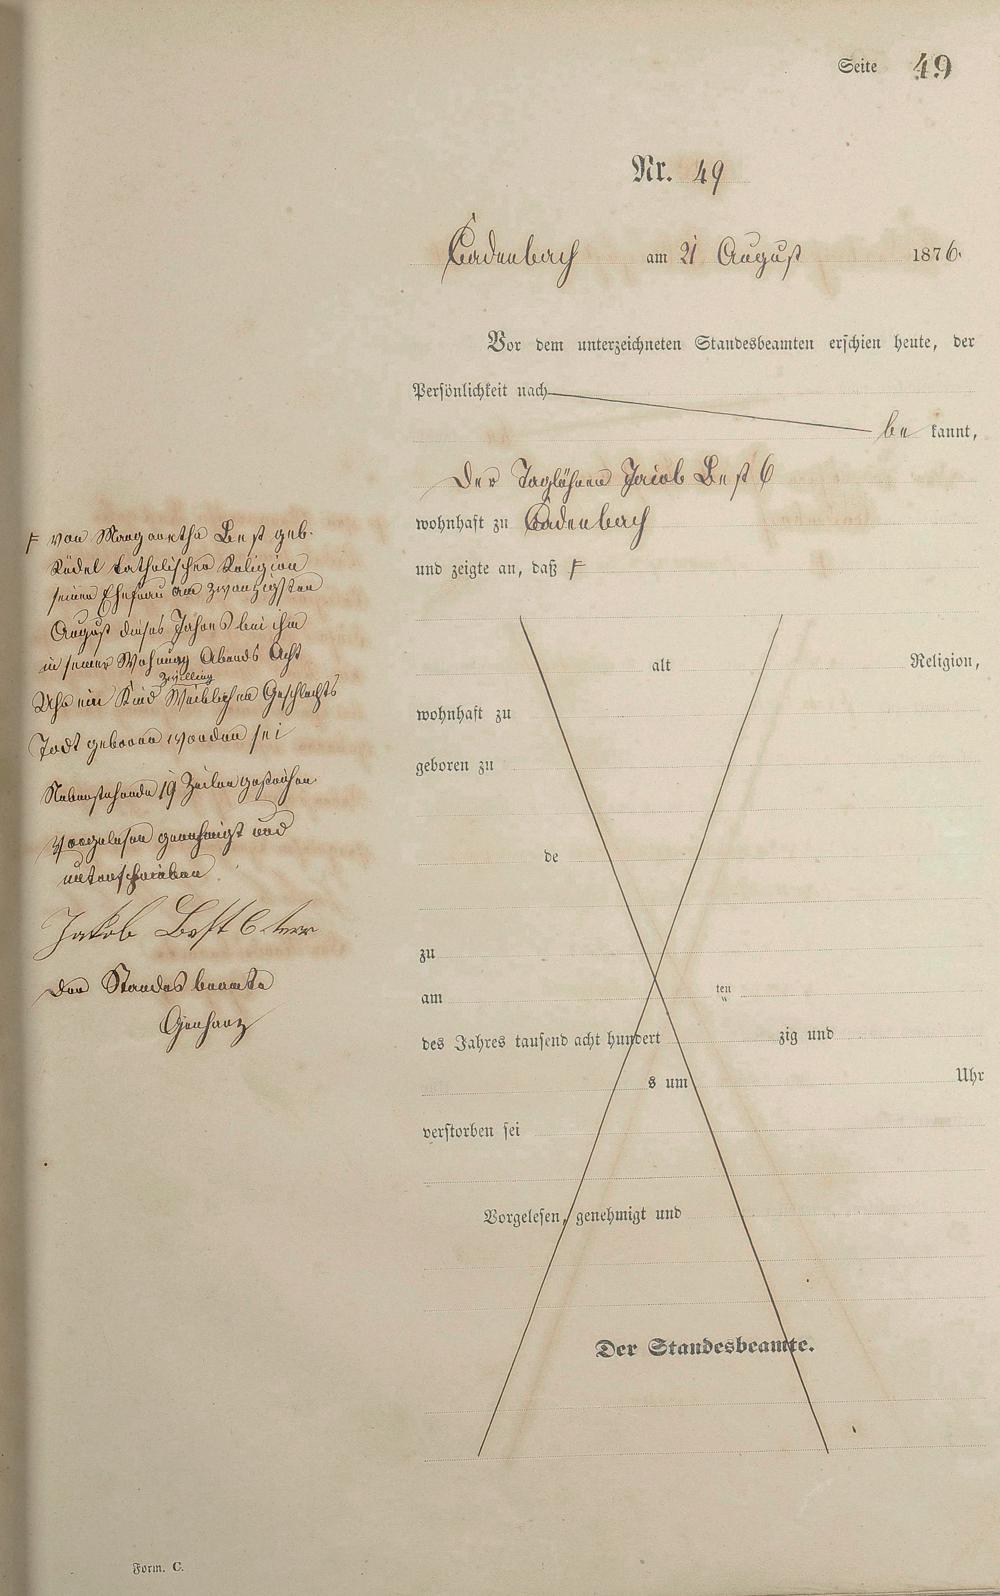 Seite 49
Nr. 49
Cadenbach am 21 August 1876.
Vor dem unterzeichneten Standesbeamten erschien heute, der
Persönlichkeit nach
be kannt,
Der Taglöhner Jacob Best 6
wohnhaft zu Cadenbach
und zeigte an, daß F
F von Margaretha Best geb.
katholischer Religion
seiner Ehefrau am zwanzigsten
August dieses Jahres bei ihm
in seiner Wohnung Abends Acht
Zwilling
Uhr ein Kind Weiblichen Geschlechts
Todt geboren worden sei
Nebenstehende 19 Zeilen gestrichen.
Vorgelesen genehmigt und
unterschrieben
Jakob Best 6ter
Der Standesbeamte
alt Religion,
wohnhaft zu
geboren zu
de
zu
am ten
des Jahres tausend acht hundert zig und
s um Uhr
verstorben sei
Vorgelesen, genehmigt und
Der Standesbeamte.
Form. C.